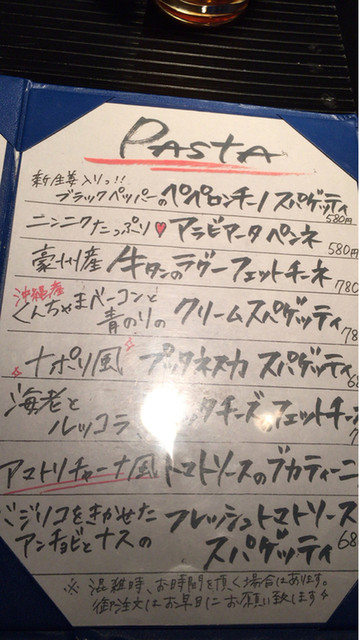 PASTA
新生姜入りっ!!
ブラックペッパーのペペロンチーノスパゲッティ
580円
ニンニクたっぷり♥アラビアータペンネ
580円
豪州産 牛タンのラグーフェットチーネ
780
沖縄産
くんちゃまベーコンと
青のりの クリームスパゲッティ
78
ナポリ風 プッタネスカ スパゲッティ
68
海老と
ルッコラ タチーズのフェットチー
アマトリチャーナ風トマトソースのブカティーニ
バジリコをきかせた フレッシュトマトソース
アンチョビとナスの スパゲッティ
68
※混雑時、お時間を頂く場合はあります。
御注文はお早目にお願い致します